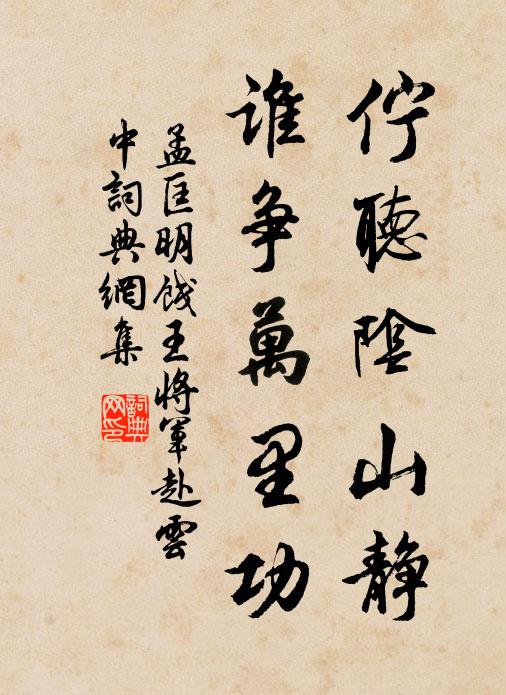 佇聽陰山靜
谁争萬里功
孟匡明餞王將軍赴雲
中詞典網集
詞典
网印